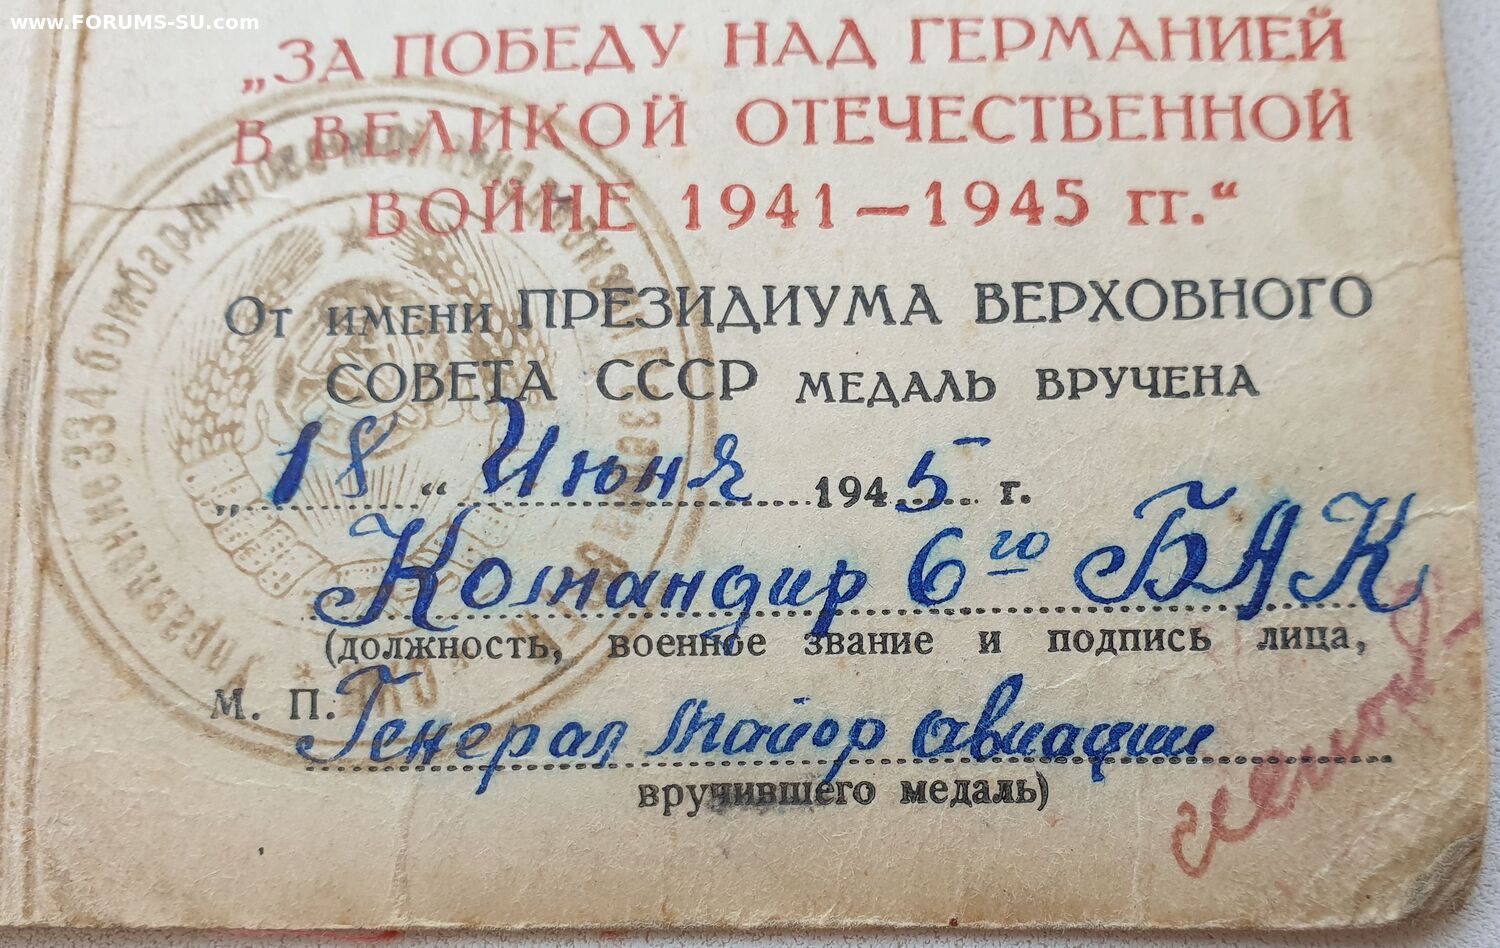 www.FORUMS-SU.com
„ЗА ПОБЕДУ НАД ГЕРМАНИЕЙ
В ВЕЛИКОЙ ОТЕЧЕСТВЕННОЙ
ВОЙНЕ 1941—1945 гг.“
От имени ПРЕЗИДИУМА ВЕРХОВНОГО
СОВЕТА СССР МЕДАЛЬ ВРУЧЕНА
„18“ Июня 1945 г.
Командир 6го БАК
(должность, военное звание и подпись лица,
М. П. Генерал Майор авиации
вручившего медаль)
Управление 334 бомбардировочной